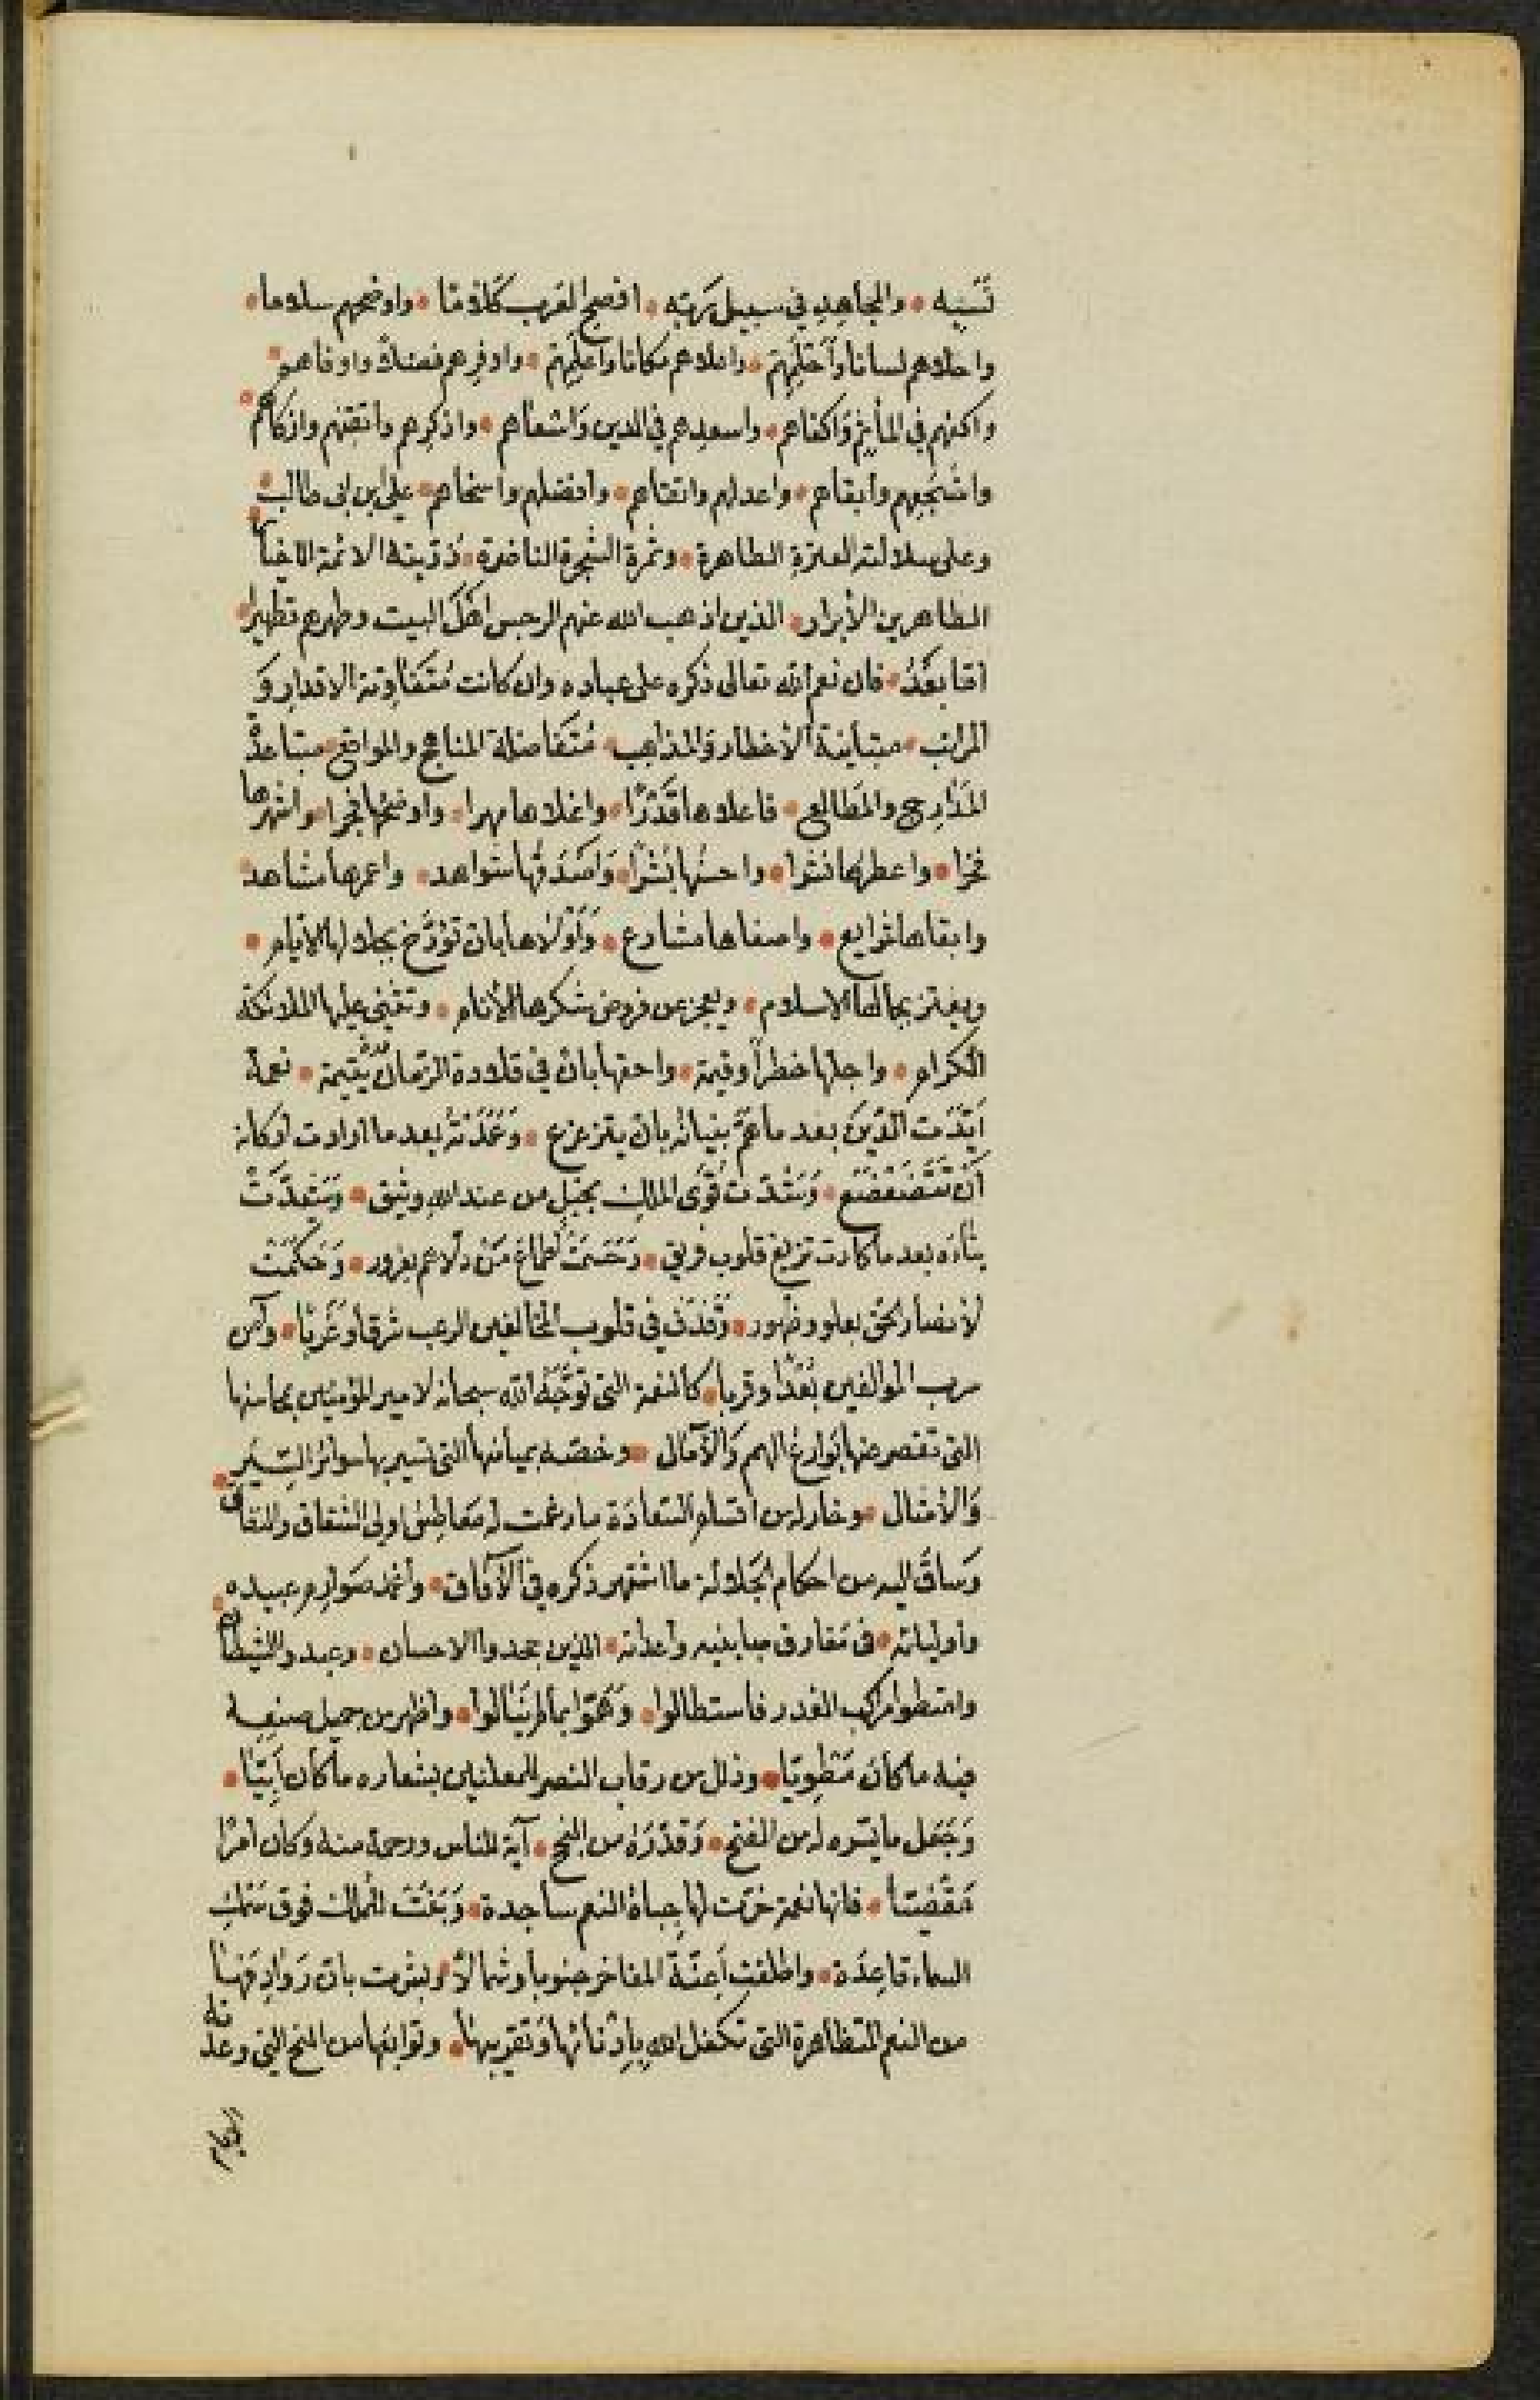 نَسَبِه • والمجاهدِ في سبيل رَبِّه • افصح العَرب كَلامًا • واوضحهم سلاما •
واحلاهم لسانا وأحلمِهِم • واعلاهم مكانا واعلمِهِم • واوفرِهم فضلاً واوفاهم •
واكفهم في المأثم وَاكفاهم • واسعدِهم في الدين وَاشفاهم • واذكرِهم واتقنهم وازكاهم •
واشجَعِهم وأبقاهم • واعدلهم واتقاهم • وافضلهم واسخاهم • علي ابن ابى طالب •
وعلى سلالته العترةِ الطاهرة • وثمرة الشجرة الناضرة • ذُرّيته الائمة الاخيار •
الطاهرين الأبرار • الذين اذهب الله عنهم الرجس اهلَ البيت وطهرهم تطهيرا •
امّا بَعْدُ • فان نعم الله تعالى ذكره على عباده وان كانت مُتَفَاوِتة الاقدارِ وَ
المراتب • متباينة الأخطار وَالمذاهب • مُتَفاضلة المناهج والمواقع • متباعدة
المَدَارج والمَطالع • فاعلاها قَدْرًا • واغلاها مهرا • واوضحُها فجرا • واشهرها
فخرا • واعطرُها نشرا • واحسنُها بُشرًا • وَاصدَقُها شواهد • واعمرها مشاهد
وابقاها شرايع • واصفاها مشارع • وَأَوْلاها بان تؤرَّخ بجلالها الأيام •
ويعتز بجمالها الاسلام • ويعجز عن فروض شكرها الأنام • وتثنى عليها الملائكة
الكرام • واجلها خطراً وقيمة • واحقها بان في قلادة الزمان دُرَّةٌ يتيمة • نعمة
أَيَّدَت الدّينَ بعد ما همَّ بنيانُه بان يتزعزع • وَعَمَدَتْهُ بعد ما ارادت اركانه
أَنْ تَتَضَعْضَع • وَشَدَّت قُوَى الملك بحبلٍ من عند الله وثيق •
بعد ما كادت تزيغ قلوب فريق • وَحَسَمَتْ أطماعَ مَنْ دلاهم بغرور • وَحَكَمَتْ
لأنصار الحق بعلو وظهور • وَقَذَفَ في قلوب المخالفين الرعب شرقاً وَغَرْبًا • وآمن
سرب الموالفين بُعْدًا وقربا • كالنعمة التي تَوَّجَهُ الله سبحانه لامير المؤمنين بمحاسنها
التي تقصر عنها بَوارِعُ الهمم وَالآمال • وخصّه بميامنها التي تسير بها سوائرُ السِّيَر
وَالأمثال • وخار له من اقسام السَّعادَة ما رغمت له مَعاطِسُ اولى الشقاق والنفاق •
وَساقَ اليه من احكام الجَلالة ما اشتهر ذكره في الآفاق • وأغمد صَوارِم عبيده
وأوليائه • في مَفارق مباينيه وأعدائه • الذين جحدوا الاحسان • وعبدوا الشيطان •
وامتطوا مراكب الغدر فاستطالوا • وَهَمّوا بما لم يَنَالوا • واظهر من جميل صنيعه
فيه ما كان مَطوِيّا • وذلل من رقاب النصر للمعلنين بشعاره ما كان أَبِيّا •
وَجَعل ما يَسّره له من الفتح • وَقَدّرَهُ من النجح • آية للناس ورحمة منه وكان امرًا
مَقْضِيّا • فانها نعمة خرّت لها جِباهُ النعم ساجدة • للملك فوق سَمْك
السماء قاعِدَة • واطلقت أَعِنَّةَ المفاخر جنوبا وشمالاً • وبشرت بان رَوادِفَها
من النعم المتظاهرة التي تكفل الله بإِدْنائها وَتقريبها • وتوابعها من المنح التي وعد له